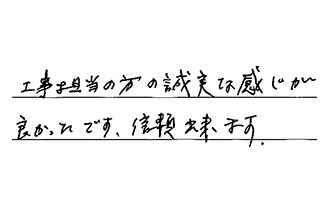 工事担当の方の誠実な感じが
良かったです、信頼出来ます.